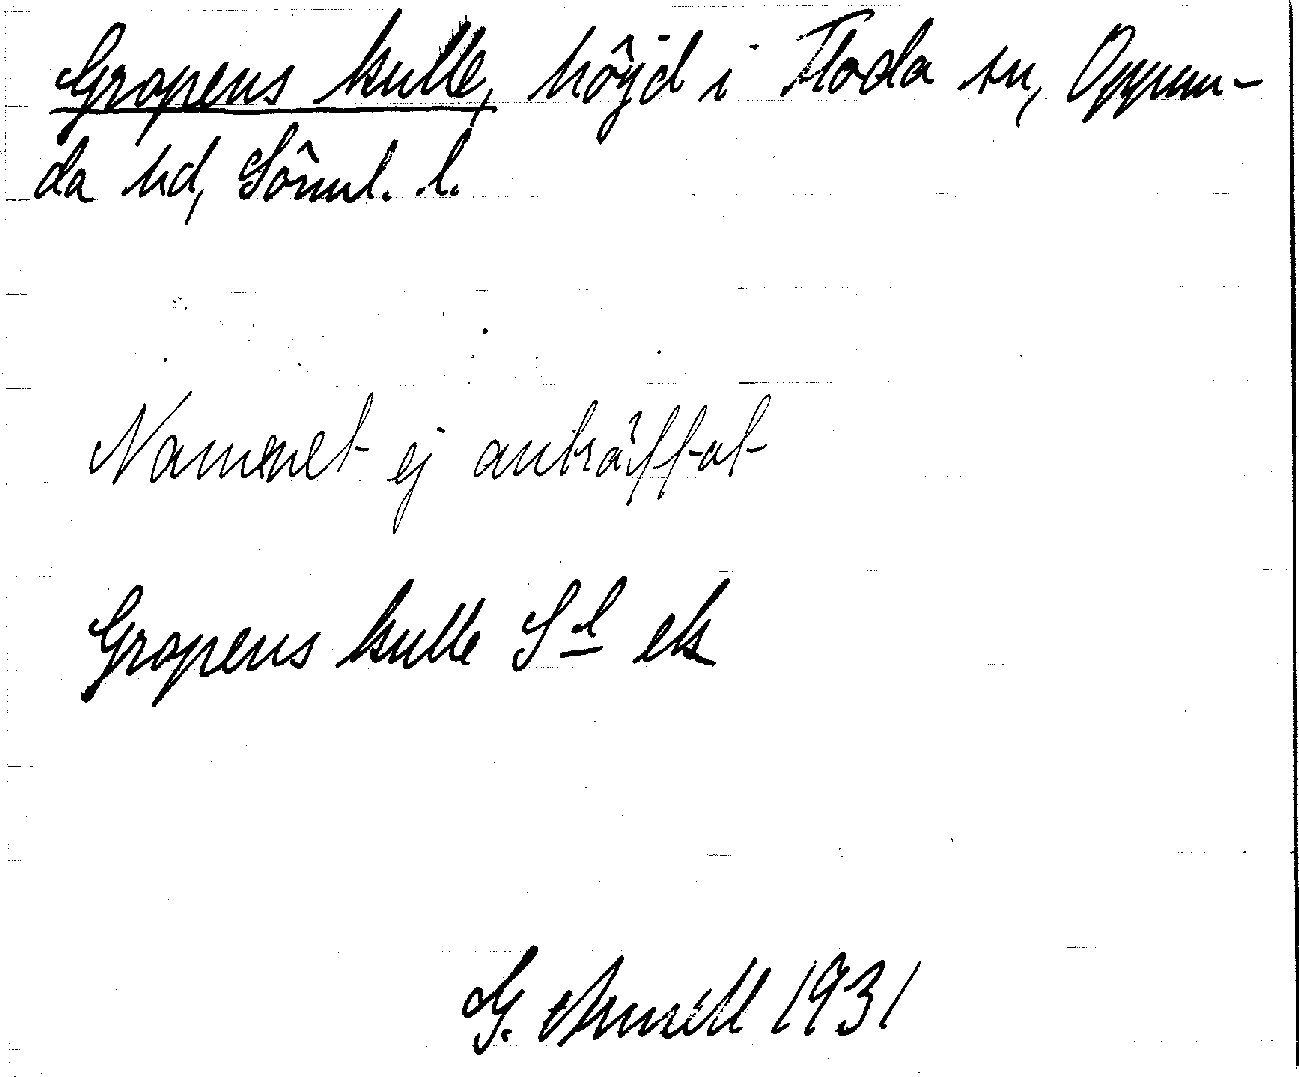 Gropens kulle, höjd i Floda sn, Oppun-
da hd, Söml. l.
Namnet ej anträffat
Gropens kulle Sl ek
G. Arnell 1931